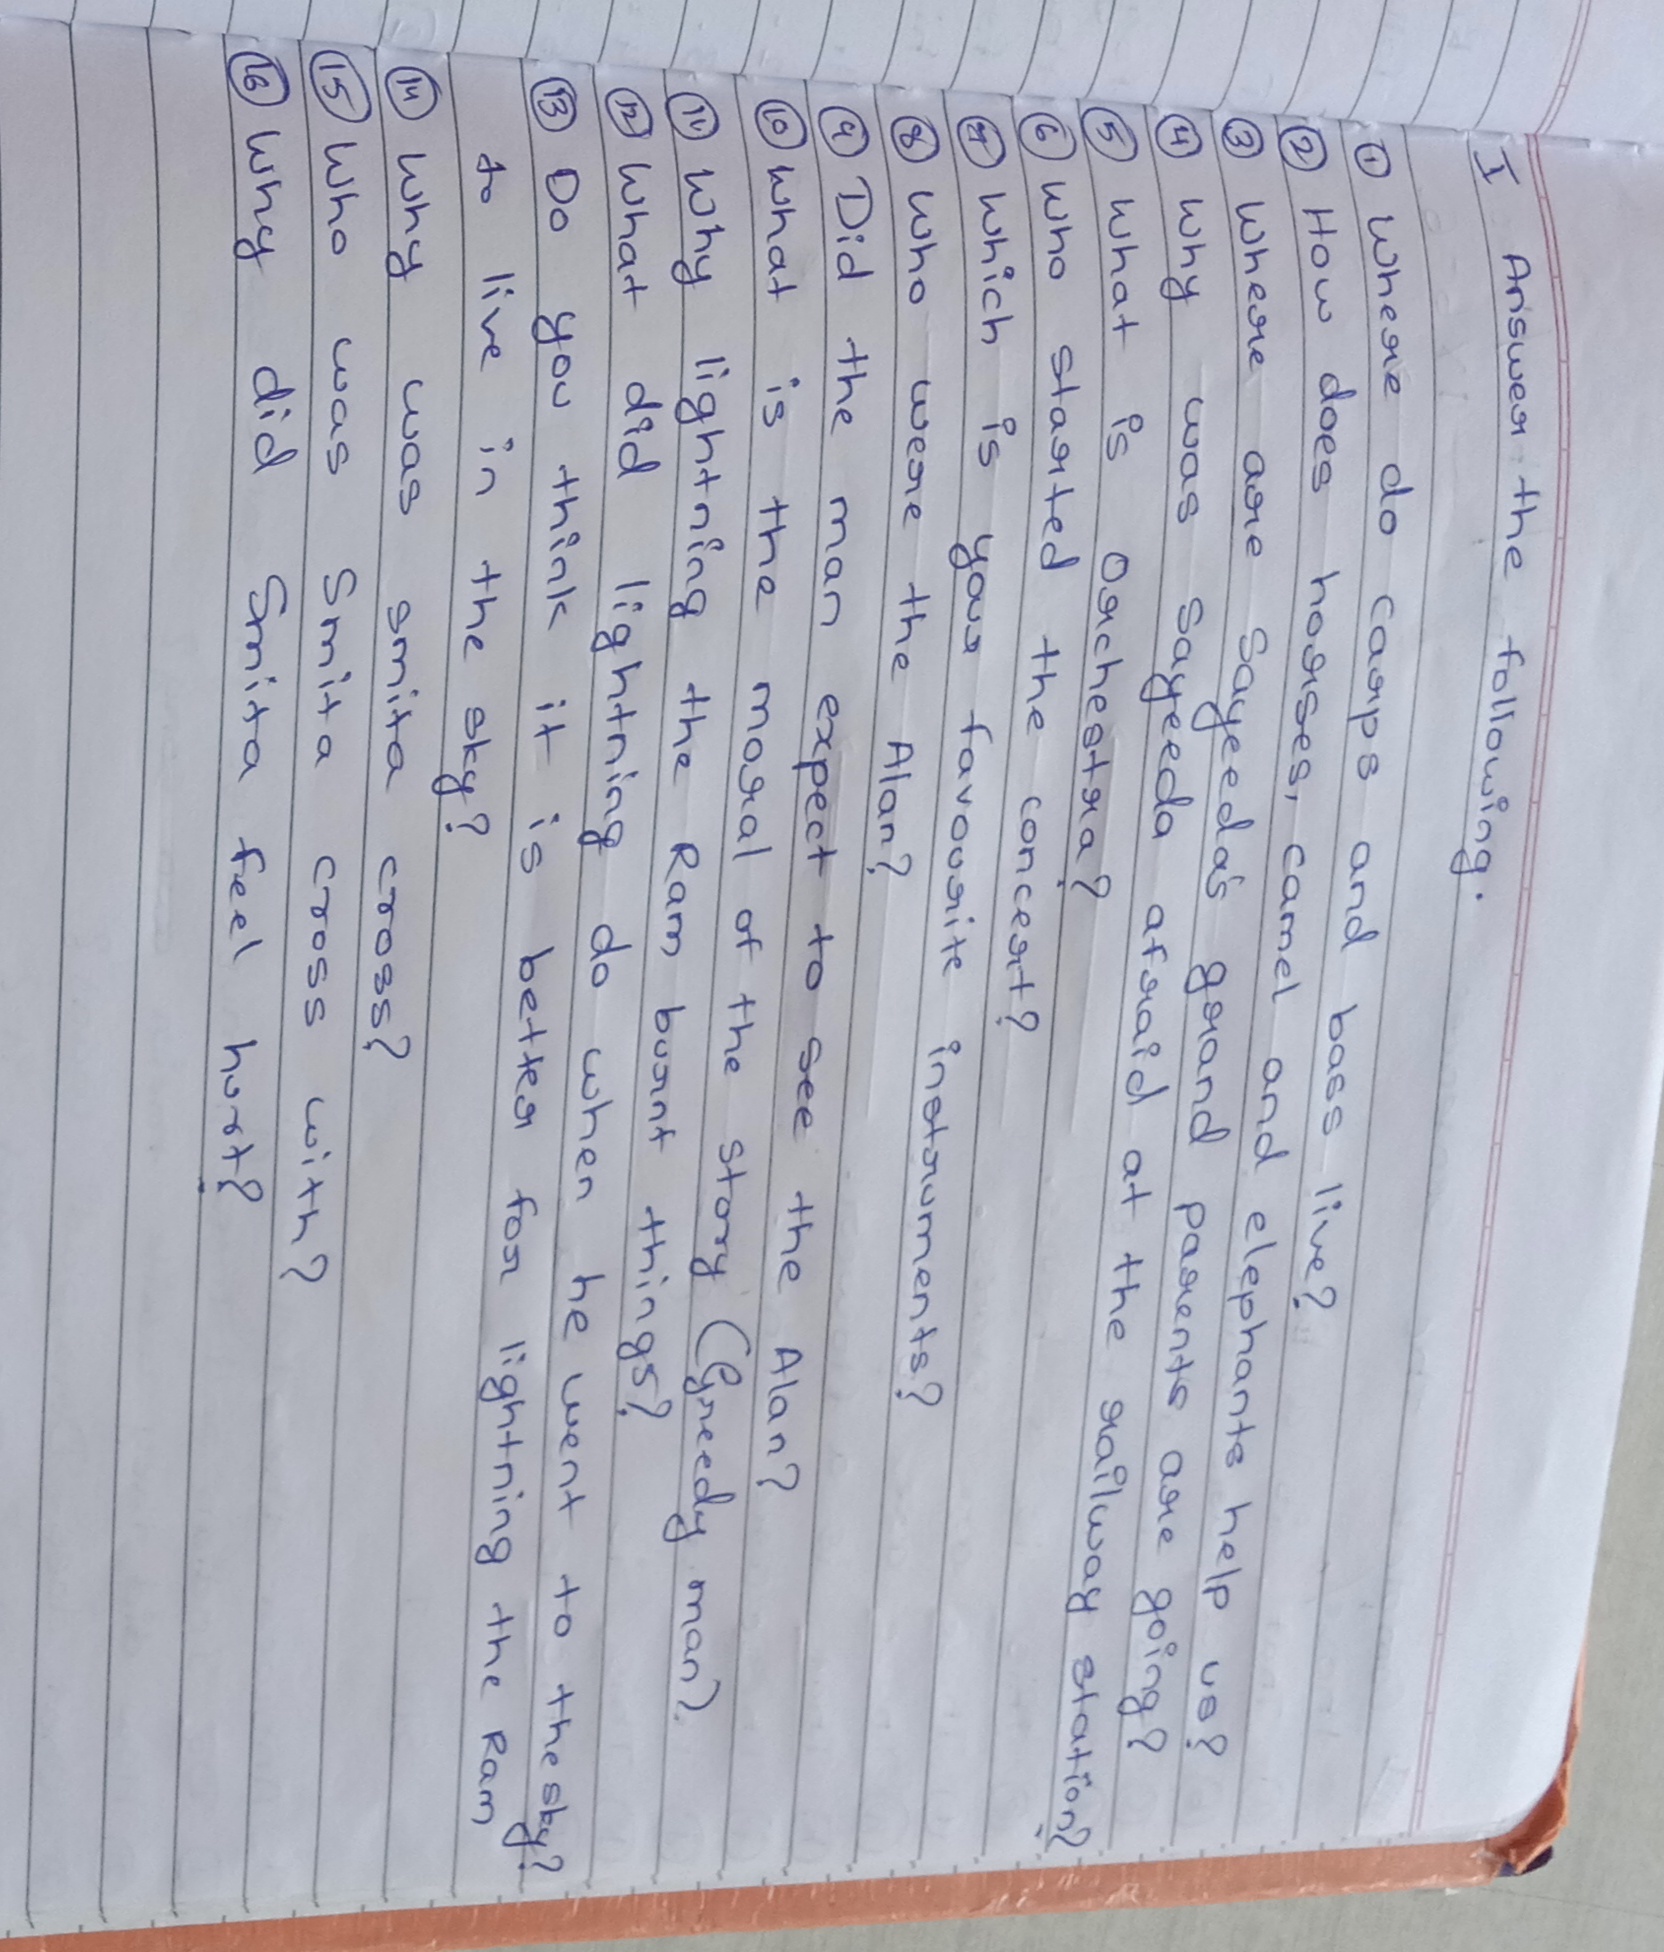 I Answer the following.
① Where do carps and bass live?
② How does horses, camel and elephants help us?
③ Where are Sayeeda's grand parents are going?
④ Why was Sayeeda afraid at the railway station?
⑤ What is Orchestra?
⑥ Who started the concert?
⑦ Which is your favourite instruments?
⑧ Who were the Alan?
⑨ Did the man expect to see the Alan?
⑩ What is the moral of the story (Greedy man?
⑪ Why lightning the Ram burnt things?
⑫ What did lightning do when he went to the sky?
⑬ Do you think it is better for lightning the Ram
to live in the sky?
⑭ Why was smita cross?
⑮ Who was Smita cross with?
⑯ Why did Smita feel hurt?